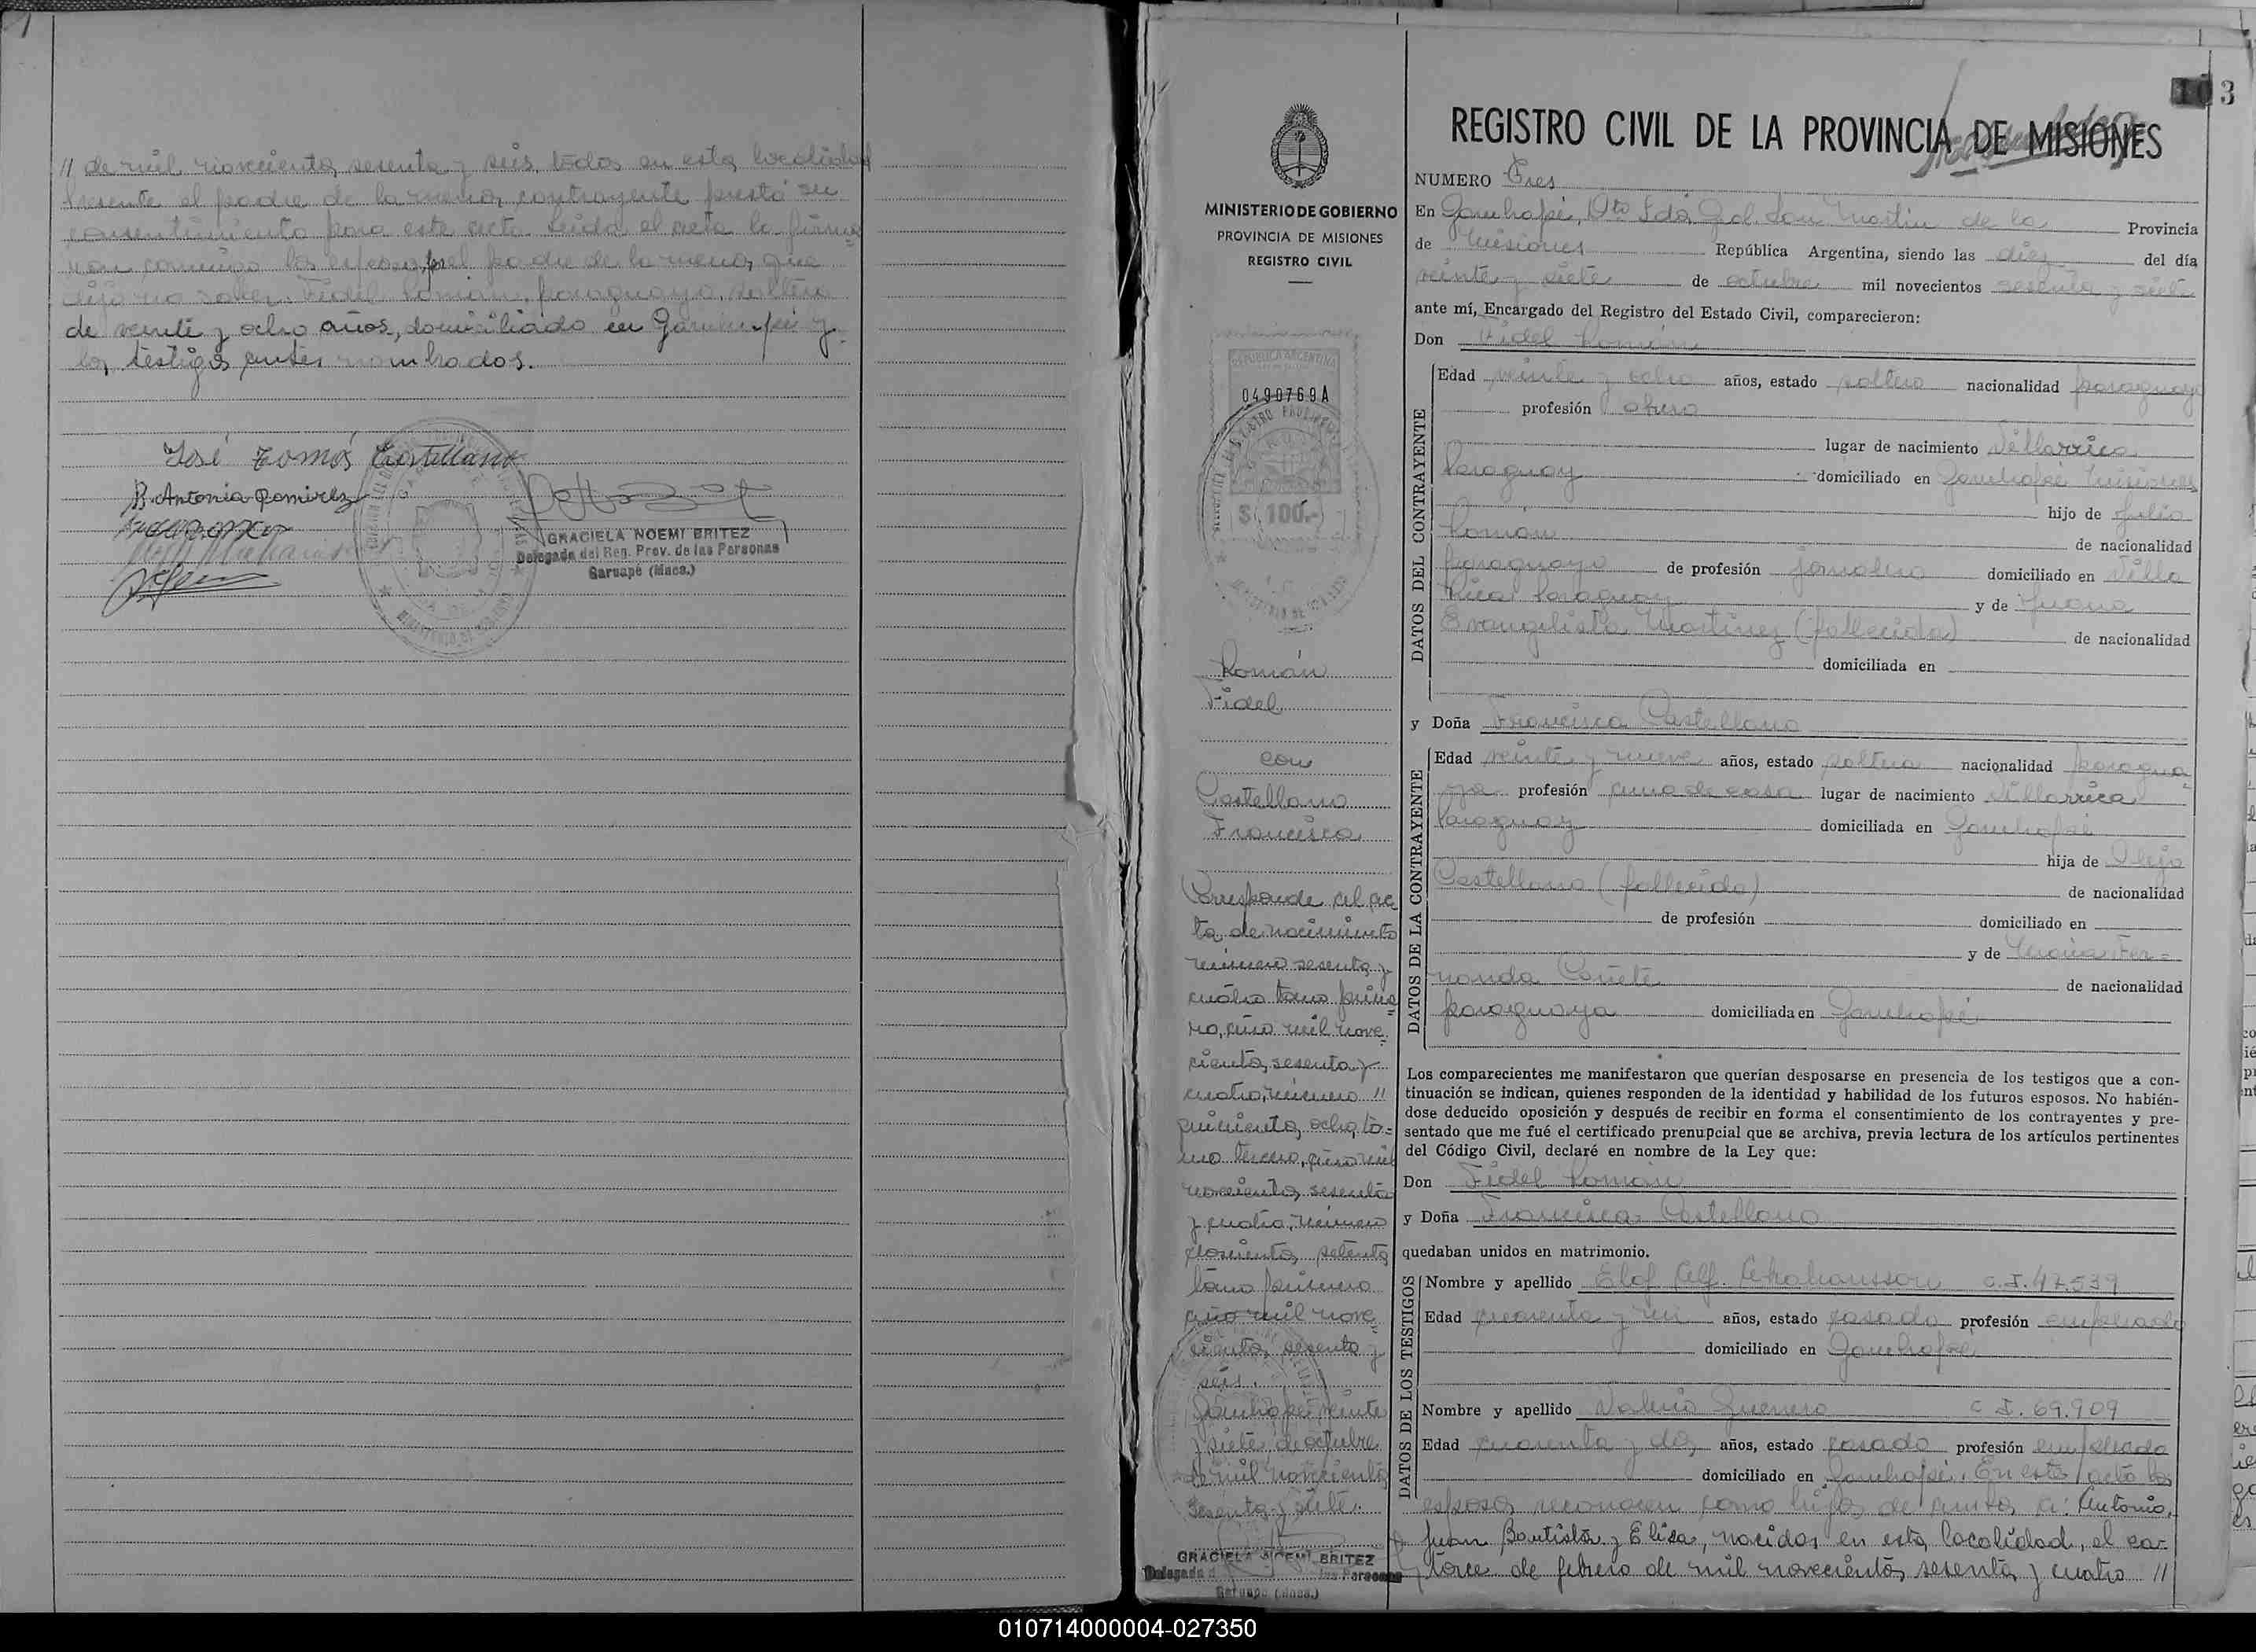 // de mil novecientos sesenta y seis, todos en esta localidad
Presente el padre de la menor contrayente prestó su
consentimiento para este acto. Leída el acta la firma=
ron conmigo los esposos, por el padre de la menor, que
dijo no saber, Fidel Román, paraguayo, soltero
de veinte y ocho años, domiciliado en Garuhapé y
los testigos antes nombrados.
José Tomás Castellano
R. Antonia Ramirez
GRACIELA NOEMI BRITEZ
Delegada del Reg. Prov. de las Personas
Garuapé (Mnes.)
3
REGISTRO CIVIL DE LA PROVINCIA DE MISIONES
MINISTERIO DE GOBIERNO
PROVINCIA DE MISIONES
REGISTRO CIVIL
REPUBLICA ARGENTINA
0490769A
$ 100.-
Román
Fidel
con
Castellano
Francisca
Corresponde al ac
ta de nacimiento
número sesenta y
cuatro tomo prime
ro, año mil nove
cientos sesenta y
cuatro, número //
quinientos ocho, to=
mo tercero, año mil
novecientos sesenta
y cuatro, número
doscientos setenta
tomo primero
año mil nove
cientos sesenta y
seis.
Garuhapé veinte
y siete de octubre
de mil novecientos
sesenta y siete.
GRACIELA NOEMI BRITEZ
Delegada d las Personas
Garuapé (Mnes.)
NUMERO Tres
En Garuhapé, Dto Ldor Gral. San Martín de la Provincia
de Misiones República Argentina, siendo las diez del día
veinte y siete de octubre mil novecientos sesenta y siete
ante mí, Encargado del Registro del Estado Civil, comparecieron:
Don Fidel Román
DATOS DEL CONTRAYENTE
Edad veinte y ocho años, estado soltero nacionalidad paraguayo
profesión obrero
lugar de nacimiento Villarrica
Paraguay domiciliado en Garuhapé Misiones
hijo de Julio
Román de nacionalidad
paraguayo de profesión jornalero domiciliado en Villa
Rica Paraguay y de Juana
Evangelista Martinez (fallecida) de nacionalidad
domiciliada en
y Doña Francisca Castellano
DATOS DE LA CONTRAYENTE
Edad veinte y nueve años, estado soltera nacionalidad paragua=
ya profesión ama de casa lugar de nacimiento Villarrica
Paraguay domiciliada en Garuhapé
hija de Alejo
Castellano (fallecido) de nacionalidad
de profesión domiciliado en
y de María Fer=
nanda Cañete de nacionalidad
paraguaya domiciliada en Garuhapé
Los comparecientes me manifestaron que querían desposarse en presencia de los testigos que a con-
tinuación se indican, quienes responden de la identidad y habilidad de los futuros esposos. No habién-
dose deducido oposición y después de recibir en forma el consentimiento de los contrayentes y pre-
sentado que me fué el certificado prenupcial que se archiva, previa lectura de los artículos pertinentes
del Código Civil, declaré en nombre de la Ley que:
Don Fidel Román
y Doña Francisca Castellano
quedaban unidos en matrimonio.
DATOS DE LOS TESTIGOS
Nombre y apellido Elof Alf. Abrahansson C.I. 47.539
Edad cuarenta y un años, estado casado profesión empleado
domiciliado en Garuhapé
Nombre y apellido Valerio Guerrero C I. 69.909
Edad cuarenta y dos años, estado casado profesión empleado
domiciliado en Garuhapé. En este acto los
esposos reconocen como hijos de ambos a: Antonio,
Juan Bautista y Elisa, nacidos en esta localidad, el ca-
torce de febrero de mil novecientos sesenta y cuatro //
010714000004-027350